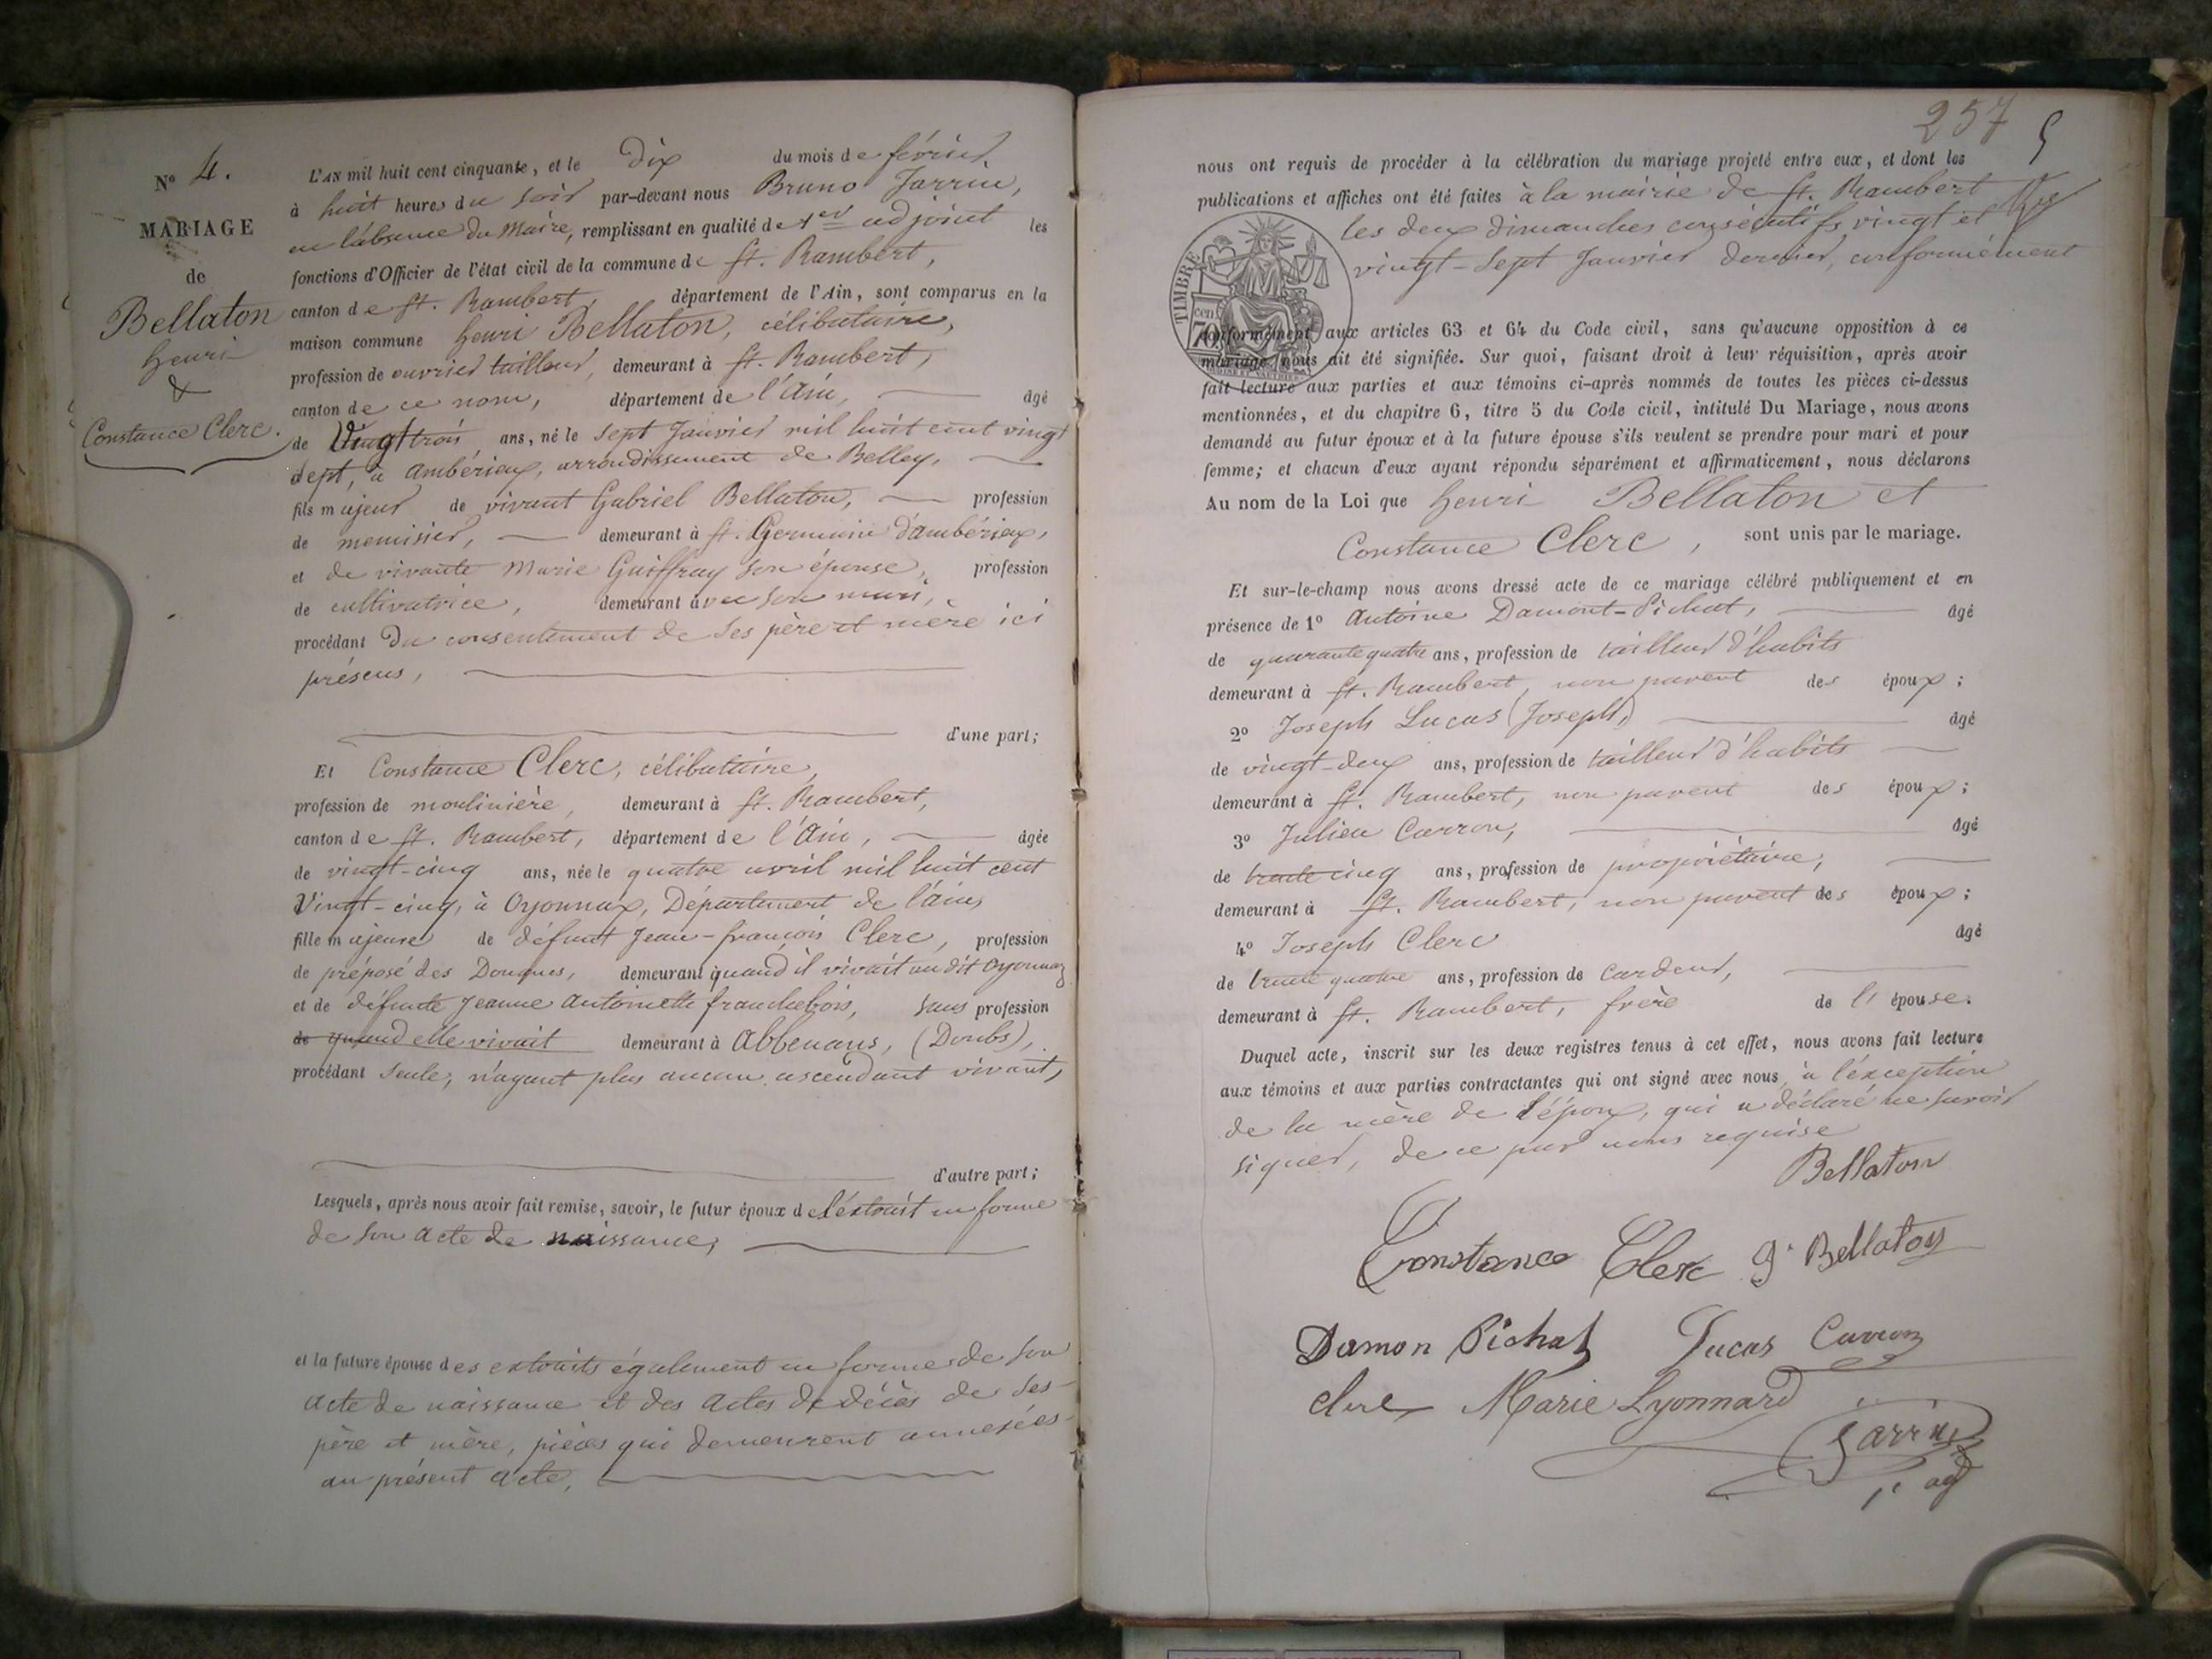 Nº 4.
MARIAGE
de
Bellaton
henri
&
Constance Clerc.
L'AN mil huit cent cinquante, et le Dix du mois de février,
à huit heures du soir par-devant nous Bruno Jarrin,
en l'absence du Maire, remplissant en qualité de 1er adjoint les
fonctions d'Officier de l'état civil de la commune de St. Rambert,
canton de St. Rambert, département de l'Ain, sont comparus en la
maison commune henri Bellaton, célibataire,
profession de ouvrier tailleur, demeurant à St. Rambert,
canton de ce nom, département de l'Ain, âgé
de Vingt trois ans, né le sept Janvier mil huit cent vingt
sept, à ambérieux, arrondissement de Belley,
fils majeur de vivant Gabriel Bellaton, profession
de menuisier, demeurant à St. Germain d'ambérieux,
et de vivante Marie Guiffray son épouse, profession
de cultivatrice, demeurant avec son mari,
procédant Du consentement de ses père et mère ici
présens,
d'une part;
Et Constance Clerc, célibataire,
profession de moulinière, demeurant à St. Rambert,
canton de St. Rambert, département de l'Ain, âgée
de vingt-cinq ans, née le quatre avril mil huit cent
Vingt-cinq, à Oyonnax, Département de l'ain,
fille majeure de défunt Jean-françois Clerc, profession
de préposé des Douanes, demeurant quand il vivait au dit Oyonnax
et de défunte Jeanne antoinette franchebois, sans profession
de quand elle vivait demeurant à Abbenans, (Doubs),
procédant seule, n'ayant plus aucun ascendant vivant,
d'autre part;
Lesquels, après nous avoir fait remise, savoir, le futur époux de l'extrait en forme
de son acte de naissance;
et la future épouse des extraits également en formes de son
acte de naissance et des actes de décès de ses
père et mère, pièces qui demeurent annexées
au présent acte,
257 5
nous ont requis de procéder à la célébration du mariage projeté entre eux, et dont les
publications et affiches ont été faites à la mairie de St. Rambert
les deux dimanches consécutifs vingt et
vingt-sept Janvier dernier, conformément
TIMBRE
70 cen
conformément aux articles 63 et 64 du Code civil, sans qu'aucune opposition à ce
mariage nous ait été signifiée. Sur quoi, faisant droit à leur réquisition, après avoir
fait lecture aux parties et aux témoins ci-après nommés de toutes les pièces ci-dessus
mentionnées, et du chapitre 6, titre 5 du Code civil, intitulé Du Mariage, nous avons
demandé au futur époux et à la future épouse s'ils veulent se prendre pour mari et pour
femme; et chacun d'eux ayant répondu séparément et affirmativement, nous déclarons
Au nom de la Loi que henri Bellaton et
Constance Clerc, sont unis par le mariage.
Et sur-le-champ nous avons dressé acte de ce mariage célébré publiquement et en
présence de 1º Antoine Damont-Pichat, âgé
de quarante quatre ans, profession de tailleur d'habits
demeurant à St. Rambert, non parent des époux;
2º Joseph Lucas (Joseph,) âgé
de vingt-deux ans, profession de tailleur d'habits
demeurant à St. Rambert, non parent des époux;
3º Julien Carron, âgé
de trente cinq ans, profession de propriétaire,
demeurant à St. Rambert, non parent des époux;
4º Joseph Clerc âgé
de trente quatre ans, profession de Cardeur,
demeurant à St. Rambert, frère de l'épouse.
Duquel acte, inscrit sur les deux registres tenus à cet effet, nous avons fait lecture
aux témoins et aux parties contractantes qui ont signé avec nous, à l'exception
de la mère de l'époux, qui a déclaré ne savoir
signer, de ce par nous requise
Bellaton
Constance Clerc g. Bellaton
Damon Pichat Lucas Carron
clerc Marie Lyonnard
Jarrin
1er adj